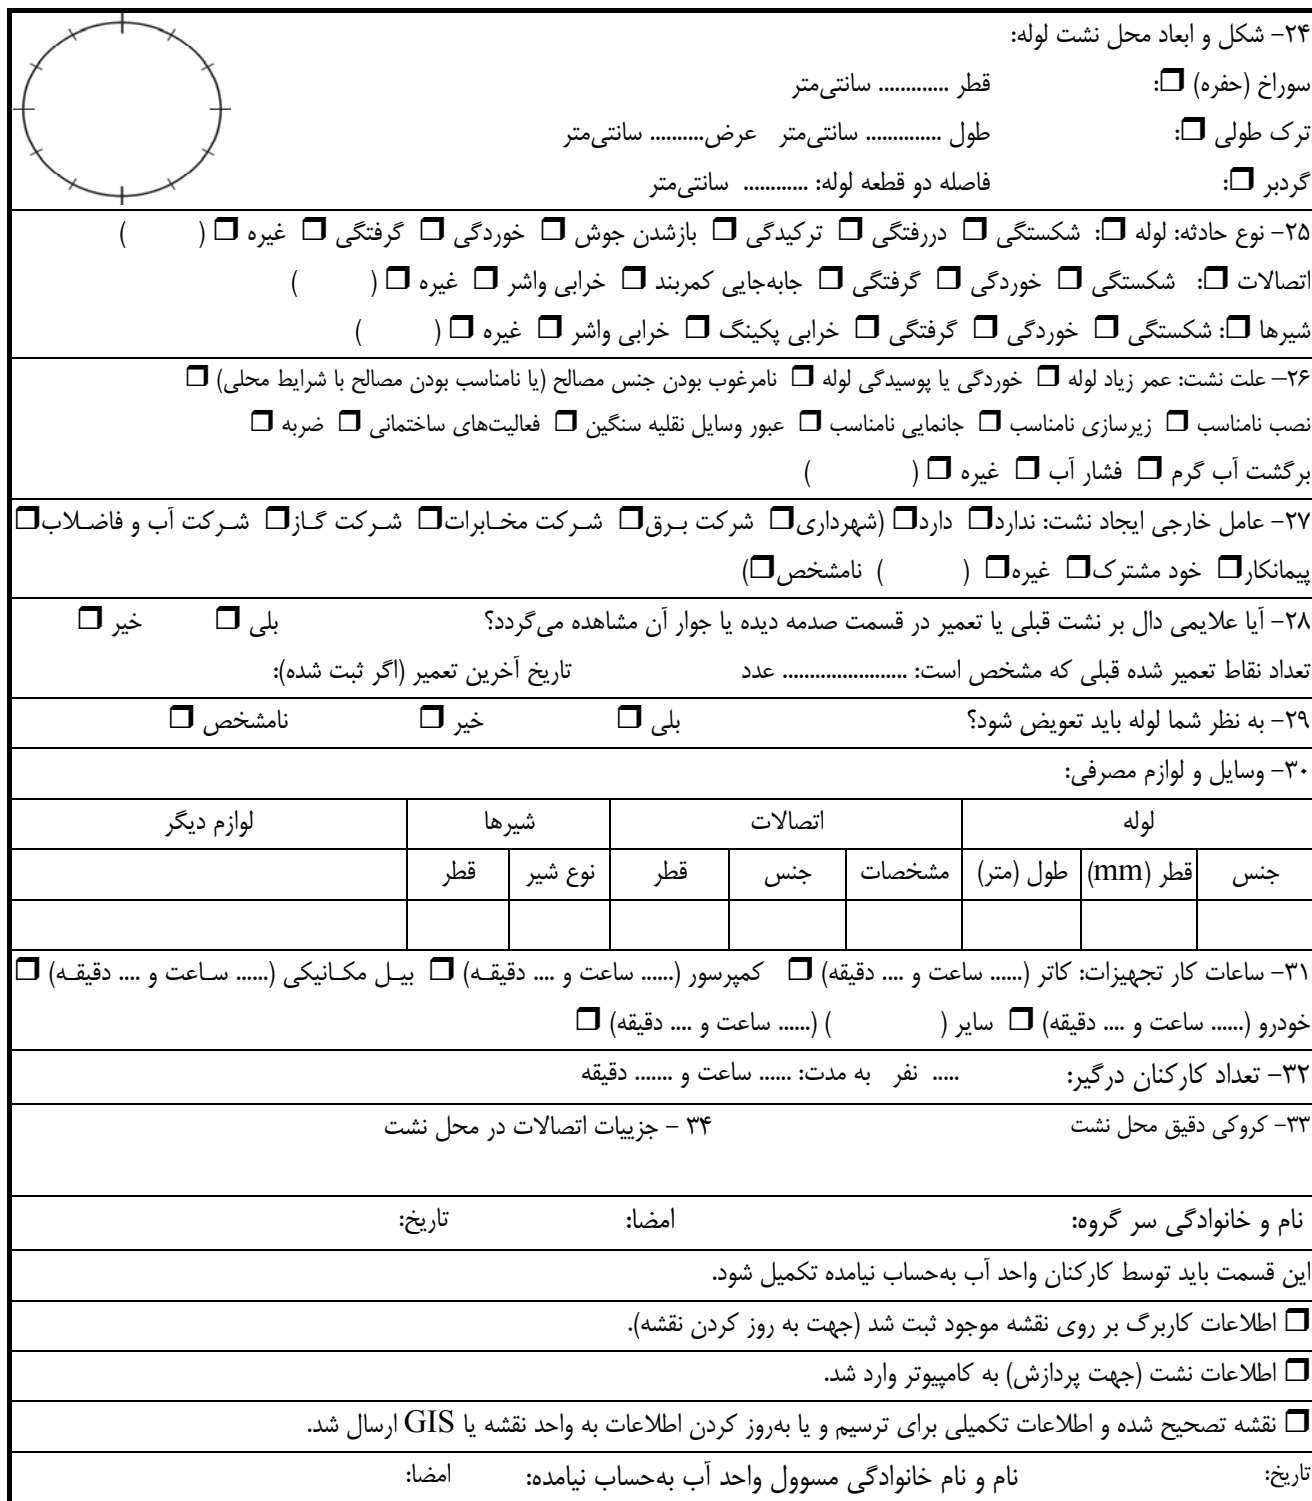 ۲۴- شکل و ابعاد محل نشت لوله:
سوراخ (حفره) ❒: قطر ............. سانتی‌متر
ترک طولی ❒: طول .............. سانتی‌متر عرض.......... سانتی‌متر
گردبر ❒: فاصله دو قطعه لوله: ............ سانتی‌متر
۲۵- نوع حادثه: لوله ❒: شکستگی ❒ دررفتگی ❒ ترکیدگی ❒ بازشدن جوش ❒ خوردگی ❒ گرفتگی ❒ غیره ❒ ( )
اتصالات ❒: شکستگی ❒ خوردگی ❒ گرفتگی ❒ جابه‌جایی کمربند ❒ خرابی واشر ❒ غیره ❒ ( )
شیرها ❒: شکستگی ❒ خوردگی ❒ گرفتگی ❒ خرابی پکینگ ❒ خرابی واشر ❒ غیره ❒ ( )
۲۶– علت نشت: عمر زیاد لوله ❒ خوردگی یا پوسیدگی لوله ❒ نامرغوب بودن جنس مصالح (یا نامناسب بودن مصالح با شرایط محلی) ❒
نصب نامناسب ❒ زیرسازی نامناسب ❒ جانمایی نامناسب ❒ عبور وسایل نقلیه سنگین ❒ فعالیت‌های ساختمانی ❒ ضربه ❒
برگشت آب گرم ❒ فشار آب ❒ غیره ❒ ( )
۲۷- عامل خارجی ایجاد نشت: ندارد❒ دارد❒ (شهرداری❒ شرکت بـرق❒ شـرکت مخـابرات❒ شـرکت گـاز❒ شـرکت آب و فاضـلاب❒
پیمانکار❒ خود مشترک❒ غیره❒ ( ) نامشخص❒)
۲۸- آیا علایمی دال بر نشت قبلی یا تعمیر در قسمت صدمه دیده یا جوار آن مشاهده می‌گردد؟ بلی ❒ خیر ❒
تعداد نقاط تعمیر شده قبلی که مشخص است: ....................... عدد تاریخ آخرین تعمیر (اگر ثبت شده):
۲۹- به نظر شما لوله باید تعویض شود؟ بلی ❒ خیر ❒ نامشخص ❒
۳۰- وسایل و لوازم مصرفی:
لوله اتصالات شیرها لوازم دیگر
جنس قطر (mm) طول (متر) مشخصات جنس قطر نوع شیر قطر
۳۱- ساعات کار تجهیزات: کاتر (...... ساعت و .... دقیقه) ❒ کمپرسور (...... ساعت و .... دقیقـه) ❒ بیـل مکـانیکی (...... سـاعت و .... دقیقـه) ❒
خودرو (...... ساعت و .... دقیقه) ❒ سایر ( ) (...... ساعت و .... دقیقه) ❒
۳۲- تعداد کارکنان درگیر: ..... نفر به مدت: ...... ساعت و ....... دقیقه
۳۳- کروکی دقیق محل نشت ۳۴ – جزییات اتصالات در محل نشت
نام و خانوادگی سر گروه: امضا: تاریخ:
این قسمت باید توسط کارکنان واحد آب به‌حساب نیامده تکمیل شود.
❒ اطلاعات کاربرگ بر روی نقشه موجود ثبت شد (جهت به روز کردن نقشه).
❒ اطلاعات نشت (جهت پردازش) به کامپیوتر وارد شد.
❒ نقشه تصحیح شده و اطلاعات تکمیلی برای ترسیم و یا به‌روز کردن اطلاعات به واحد نقشه یا GIS ارسال شد.
تاریخ: نام و نام خانوادگی مسوول واحد آب به‌حساب نیامده: امضا: